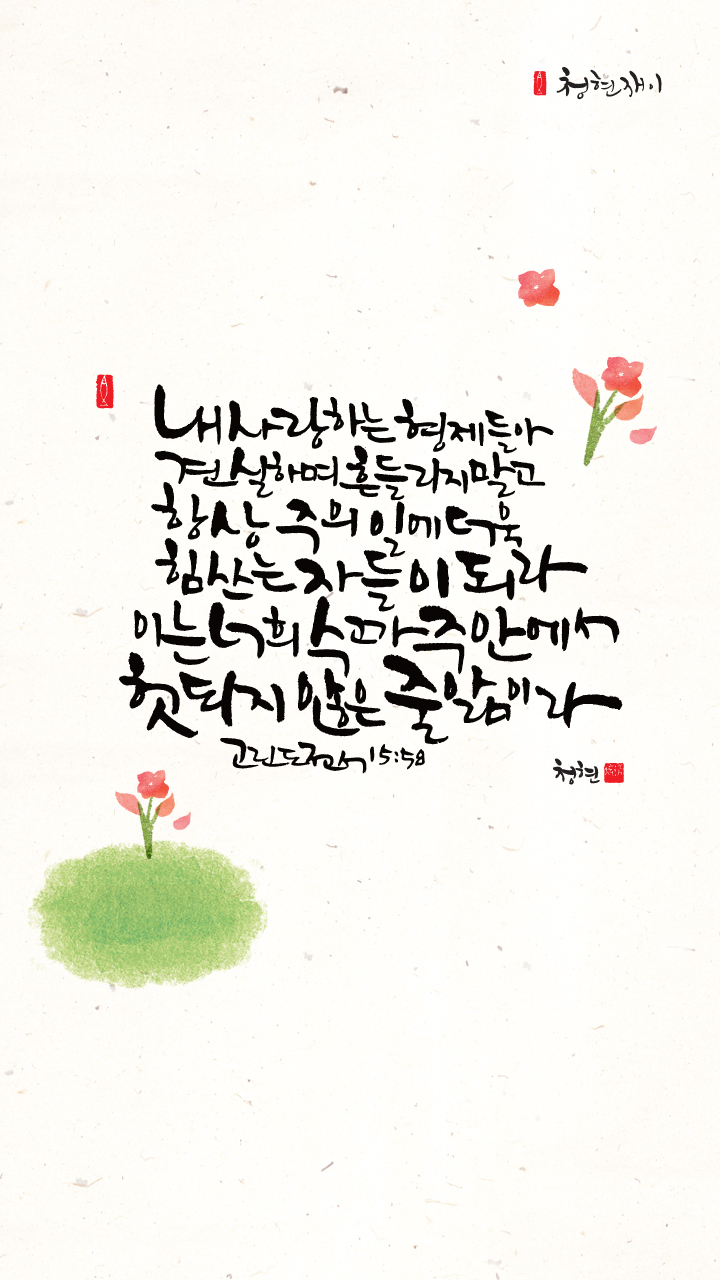 청현재이
내 사랑하는 형제들아
견실하며 흔들리지 말고
항상 주의 일에 더욱
힘쓰는 자들이 되라
이는 너희 수고가 주 안에서
헛되지 않은 줄 앎이라
고린도전서 15:58
청현